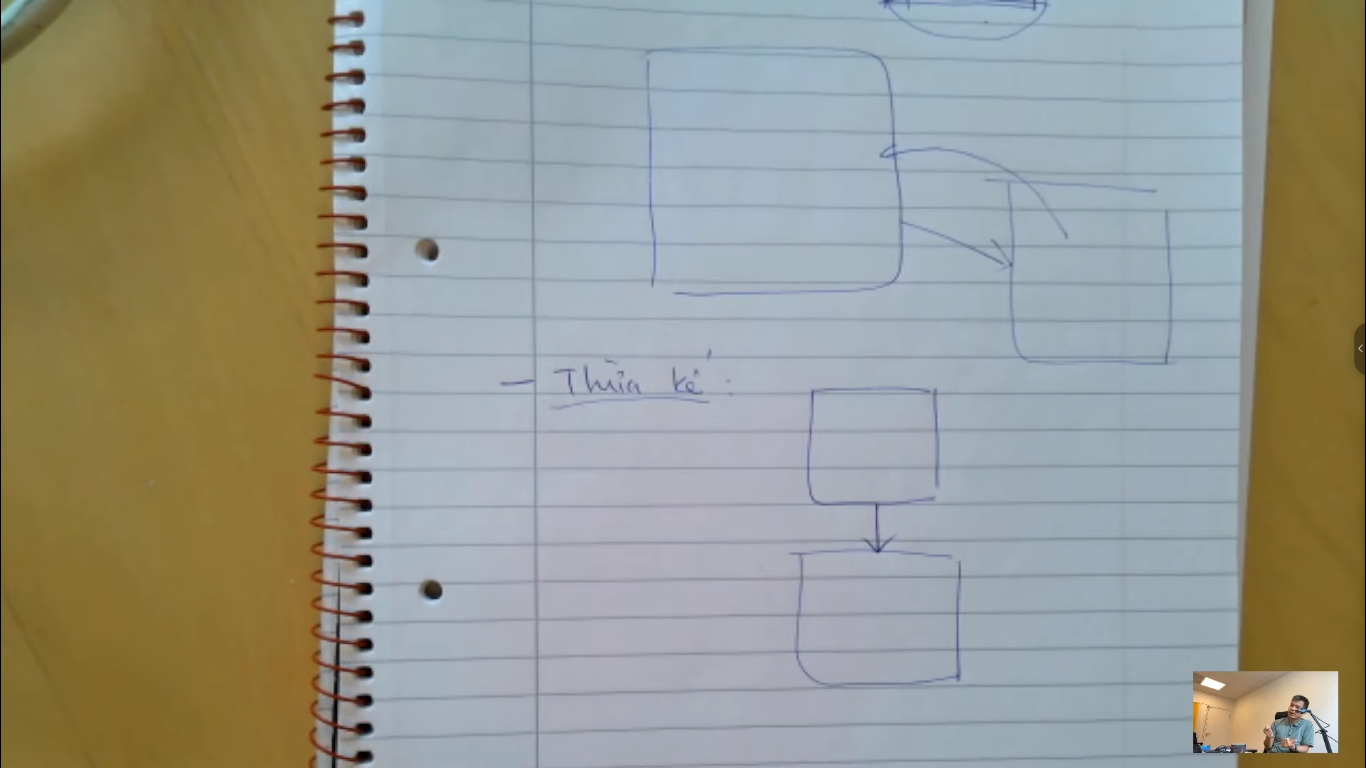 - Thừa kế :